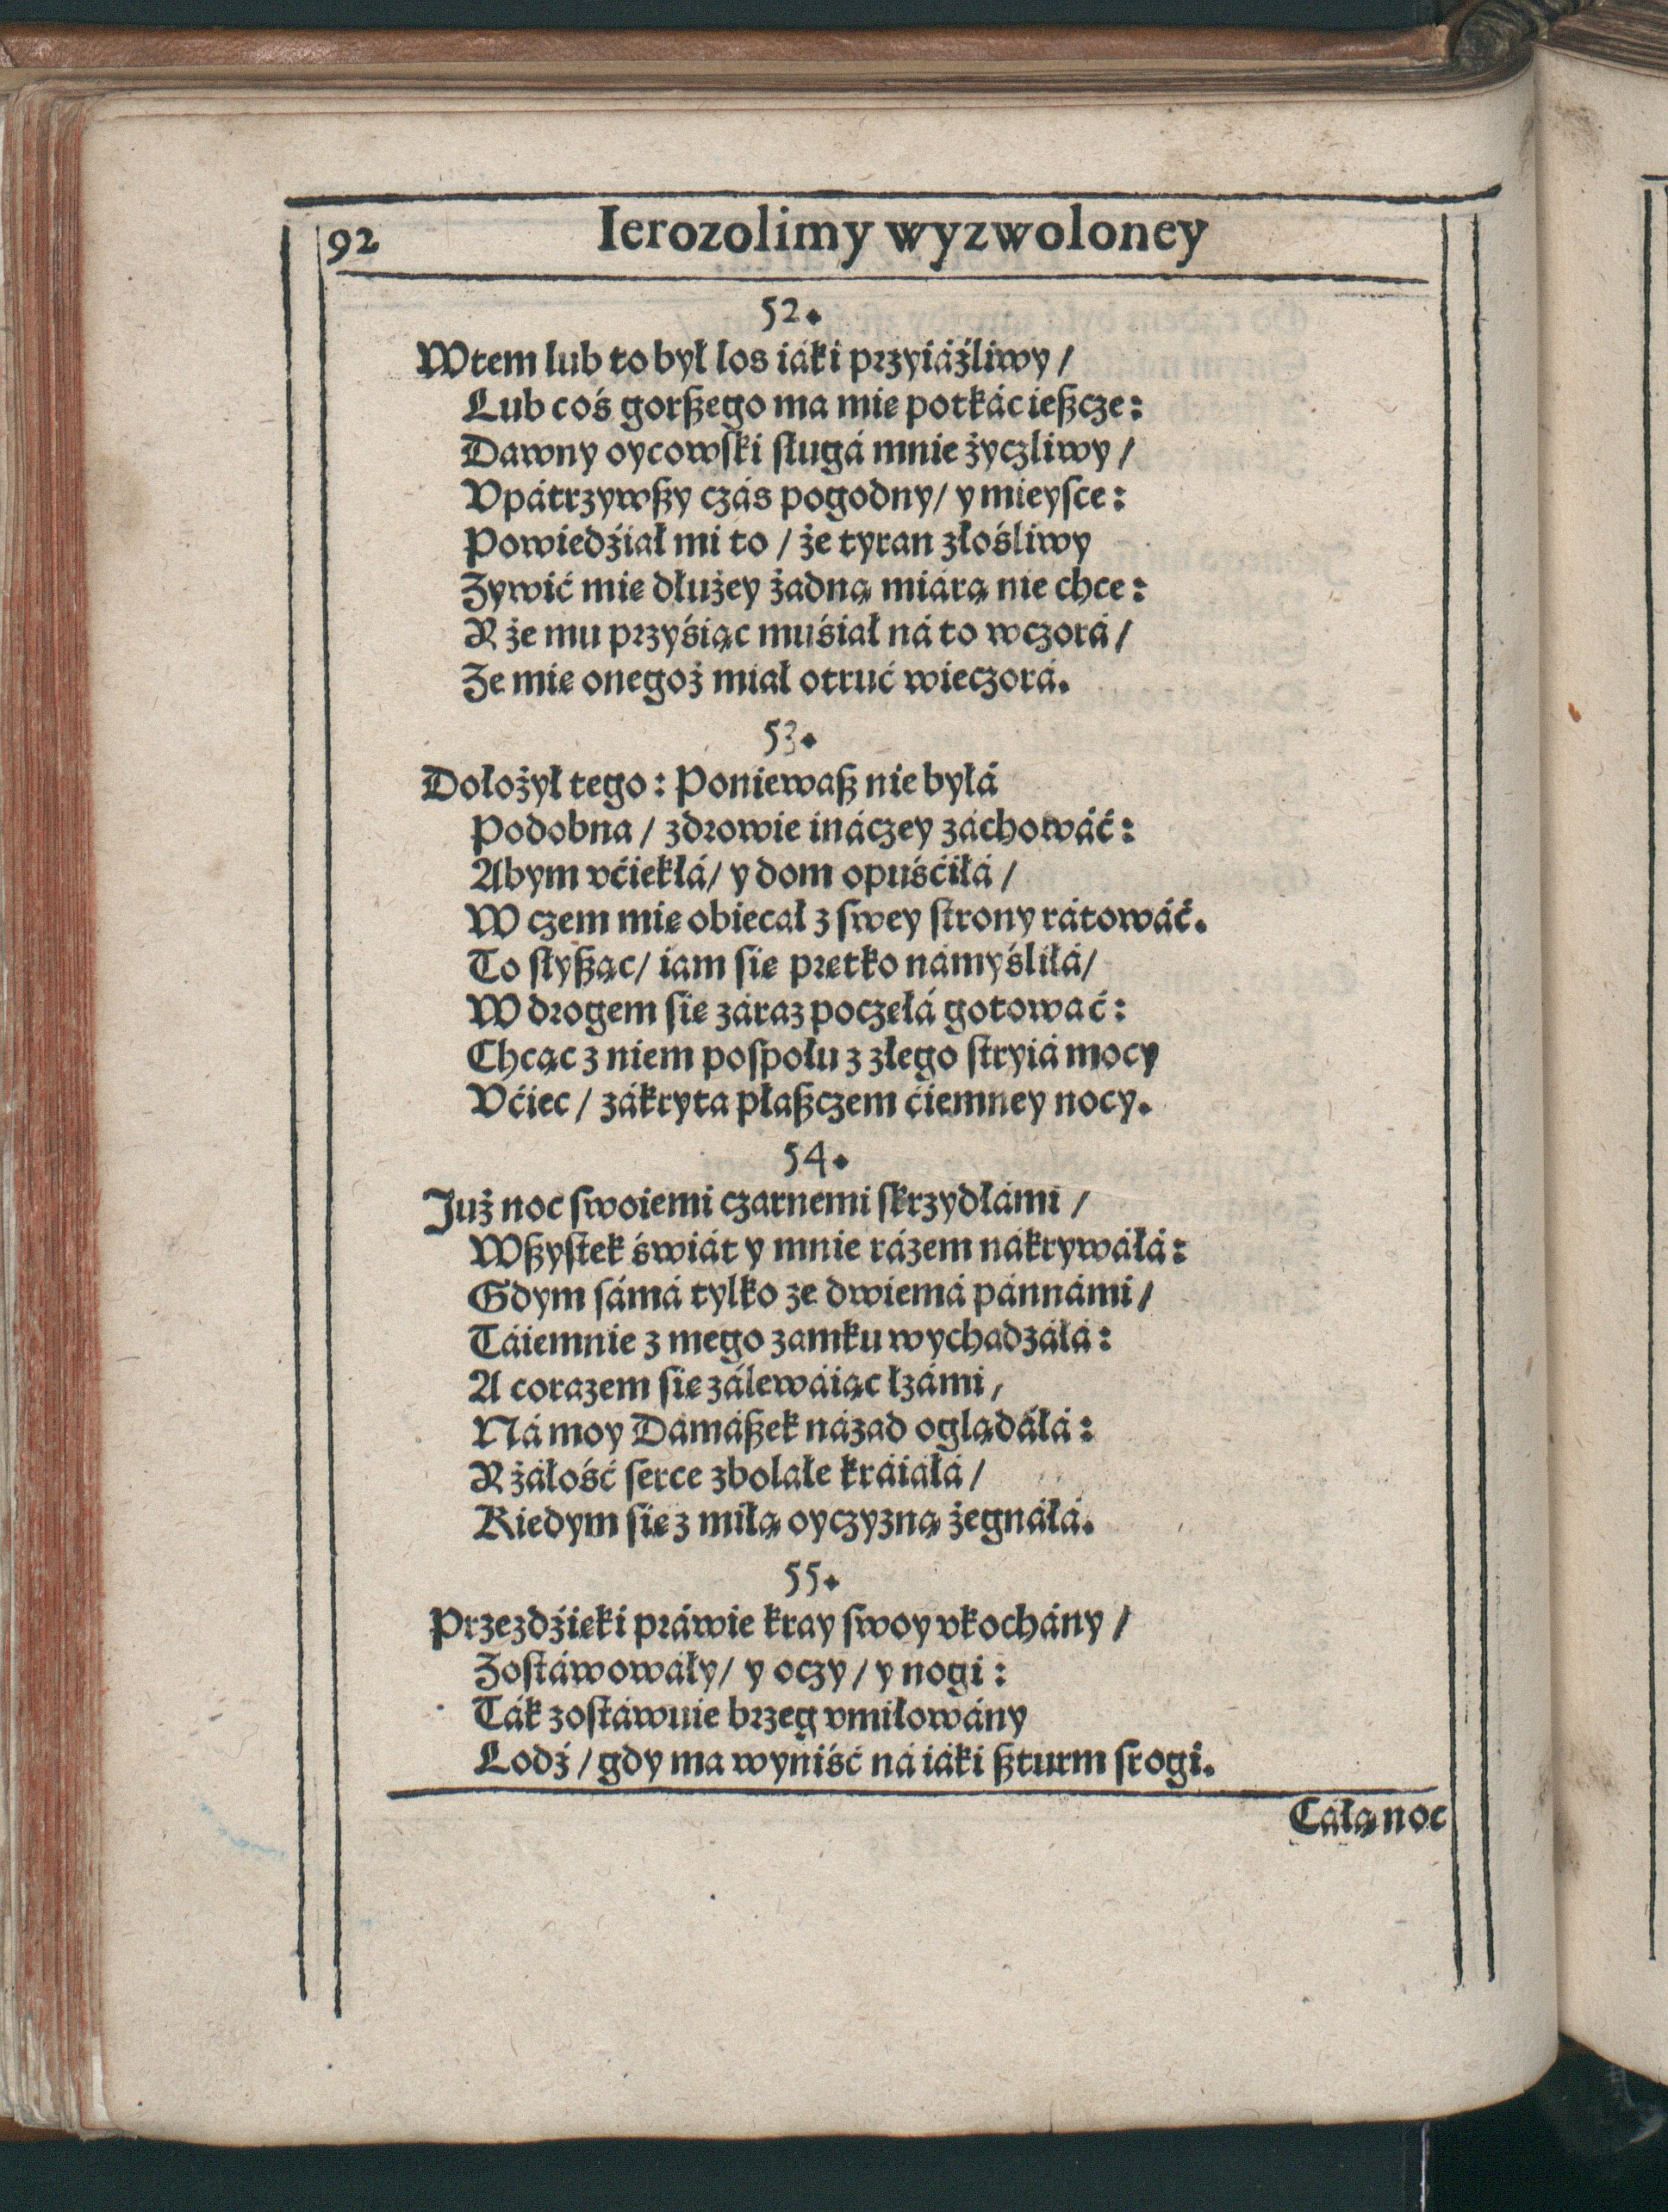 92 Ierozolimy wyzwoloney
52.
Wtem lub to był los iáki przyiáźliwy /
Lub coś gorßego ma mię potkáć ießcze:
Dawny oycowſki ſługá mnie życzliwy /
Vpátrzywßy czás pogodny / y mieyſce:
Powiedźiał mi to / że tyran złośliwy
Zywić mię dłużey żadną miárą nie chce:
Y że mu przyśiąc muśiał ná to wczorá /
Ze mię onegoż miał otruć wieczorá.
53.
Dołożył tego: Poniewaß nie byłá
Podobna / zdrowie ináczey záchowáć:
Abym vćiekłá / y dom opuśćiłá /
W czem mię obiecał z ſwey ſtrony rátowáć.
To ſłyßąc / iam ſię prętko námyśliłá /
W drogem ſię záraz poczęłá gotowáć:
Chcąc z niem poſpołu z złego ſtryiá mocy
Vćiec / zákryta płaßczem ćiemney nocy.
54.
Już noc ſwoiemi czarnemi ſkrzydłámi /
Wßyſtek świát y mnie rázem nákrywáłá:
Gdym ſámá tylko ze dwiemá pánnámi /
Táiemnie z mego zamku wychadzáłá:
A corazem ſię zálewáiąc łzámi /
Ná moy Dámáßek názad oglądáłá:
Y żáłość ſerce zbolałe kráiáłá /
Kiedym ſię z miłą oyczyzną żegnáłá.
55.
Przezdźięki práwie kray ſwoy vkochány /
Zoſtáwowáły / y oczy / y nogi:
Ták zoſtáwuie brzeg vmiłowány
Lodź / gdy ma wyniść ná iáki ßturm ſrogi.
Całą noc